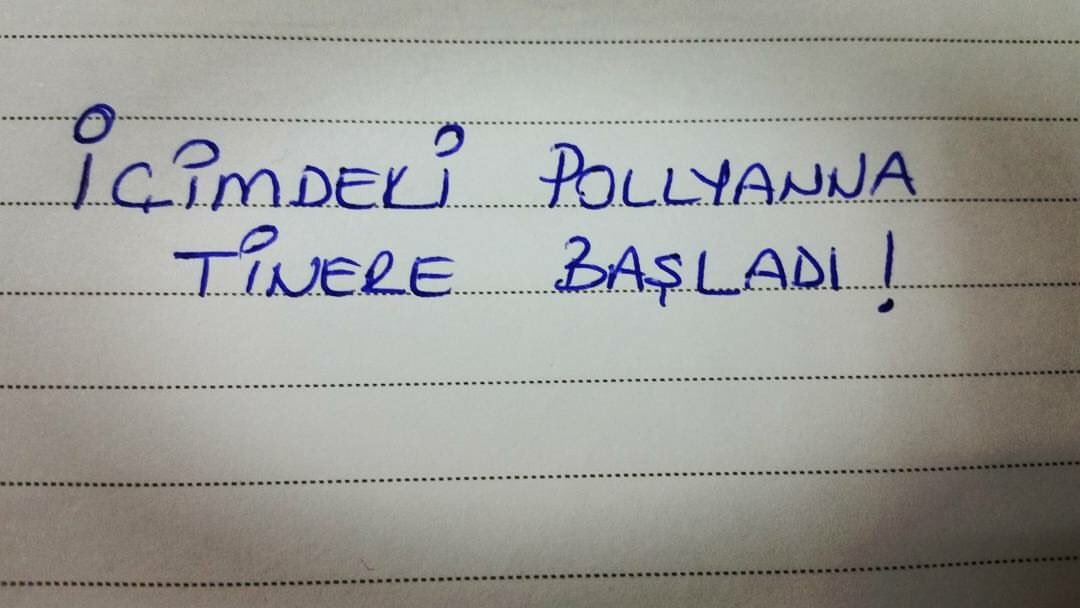 İÇİMDEKİ POLLYANNA
TİNERE BAŞLADI!